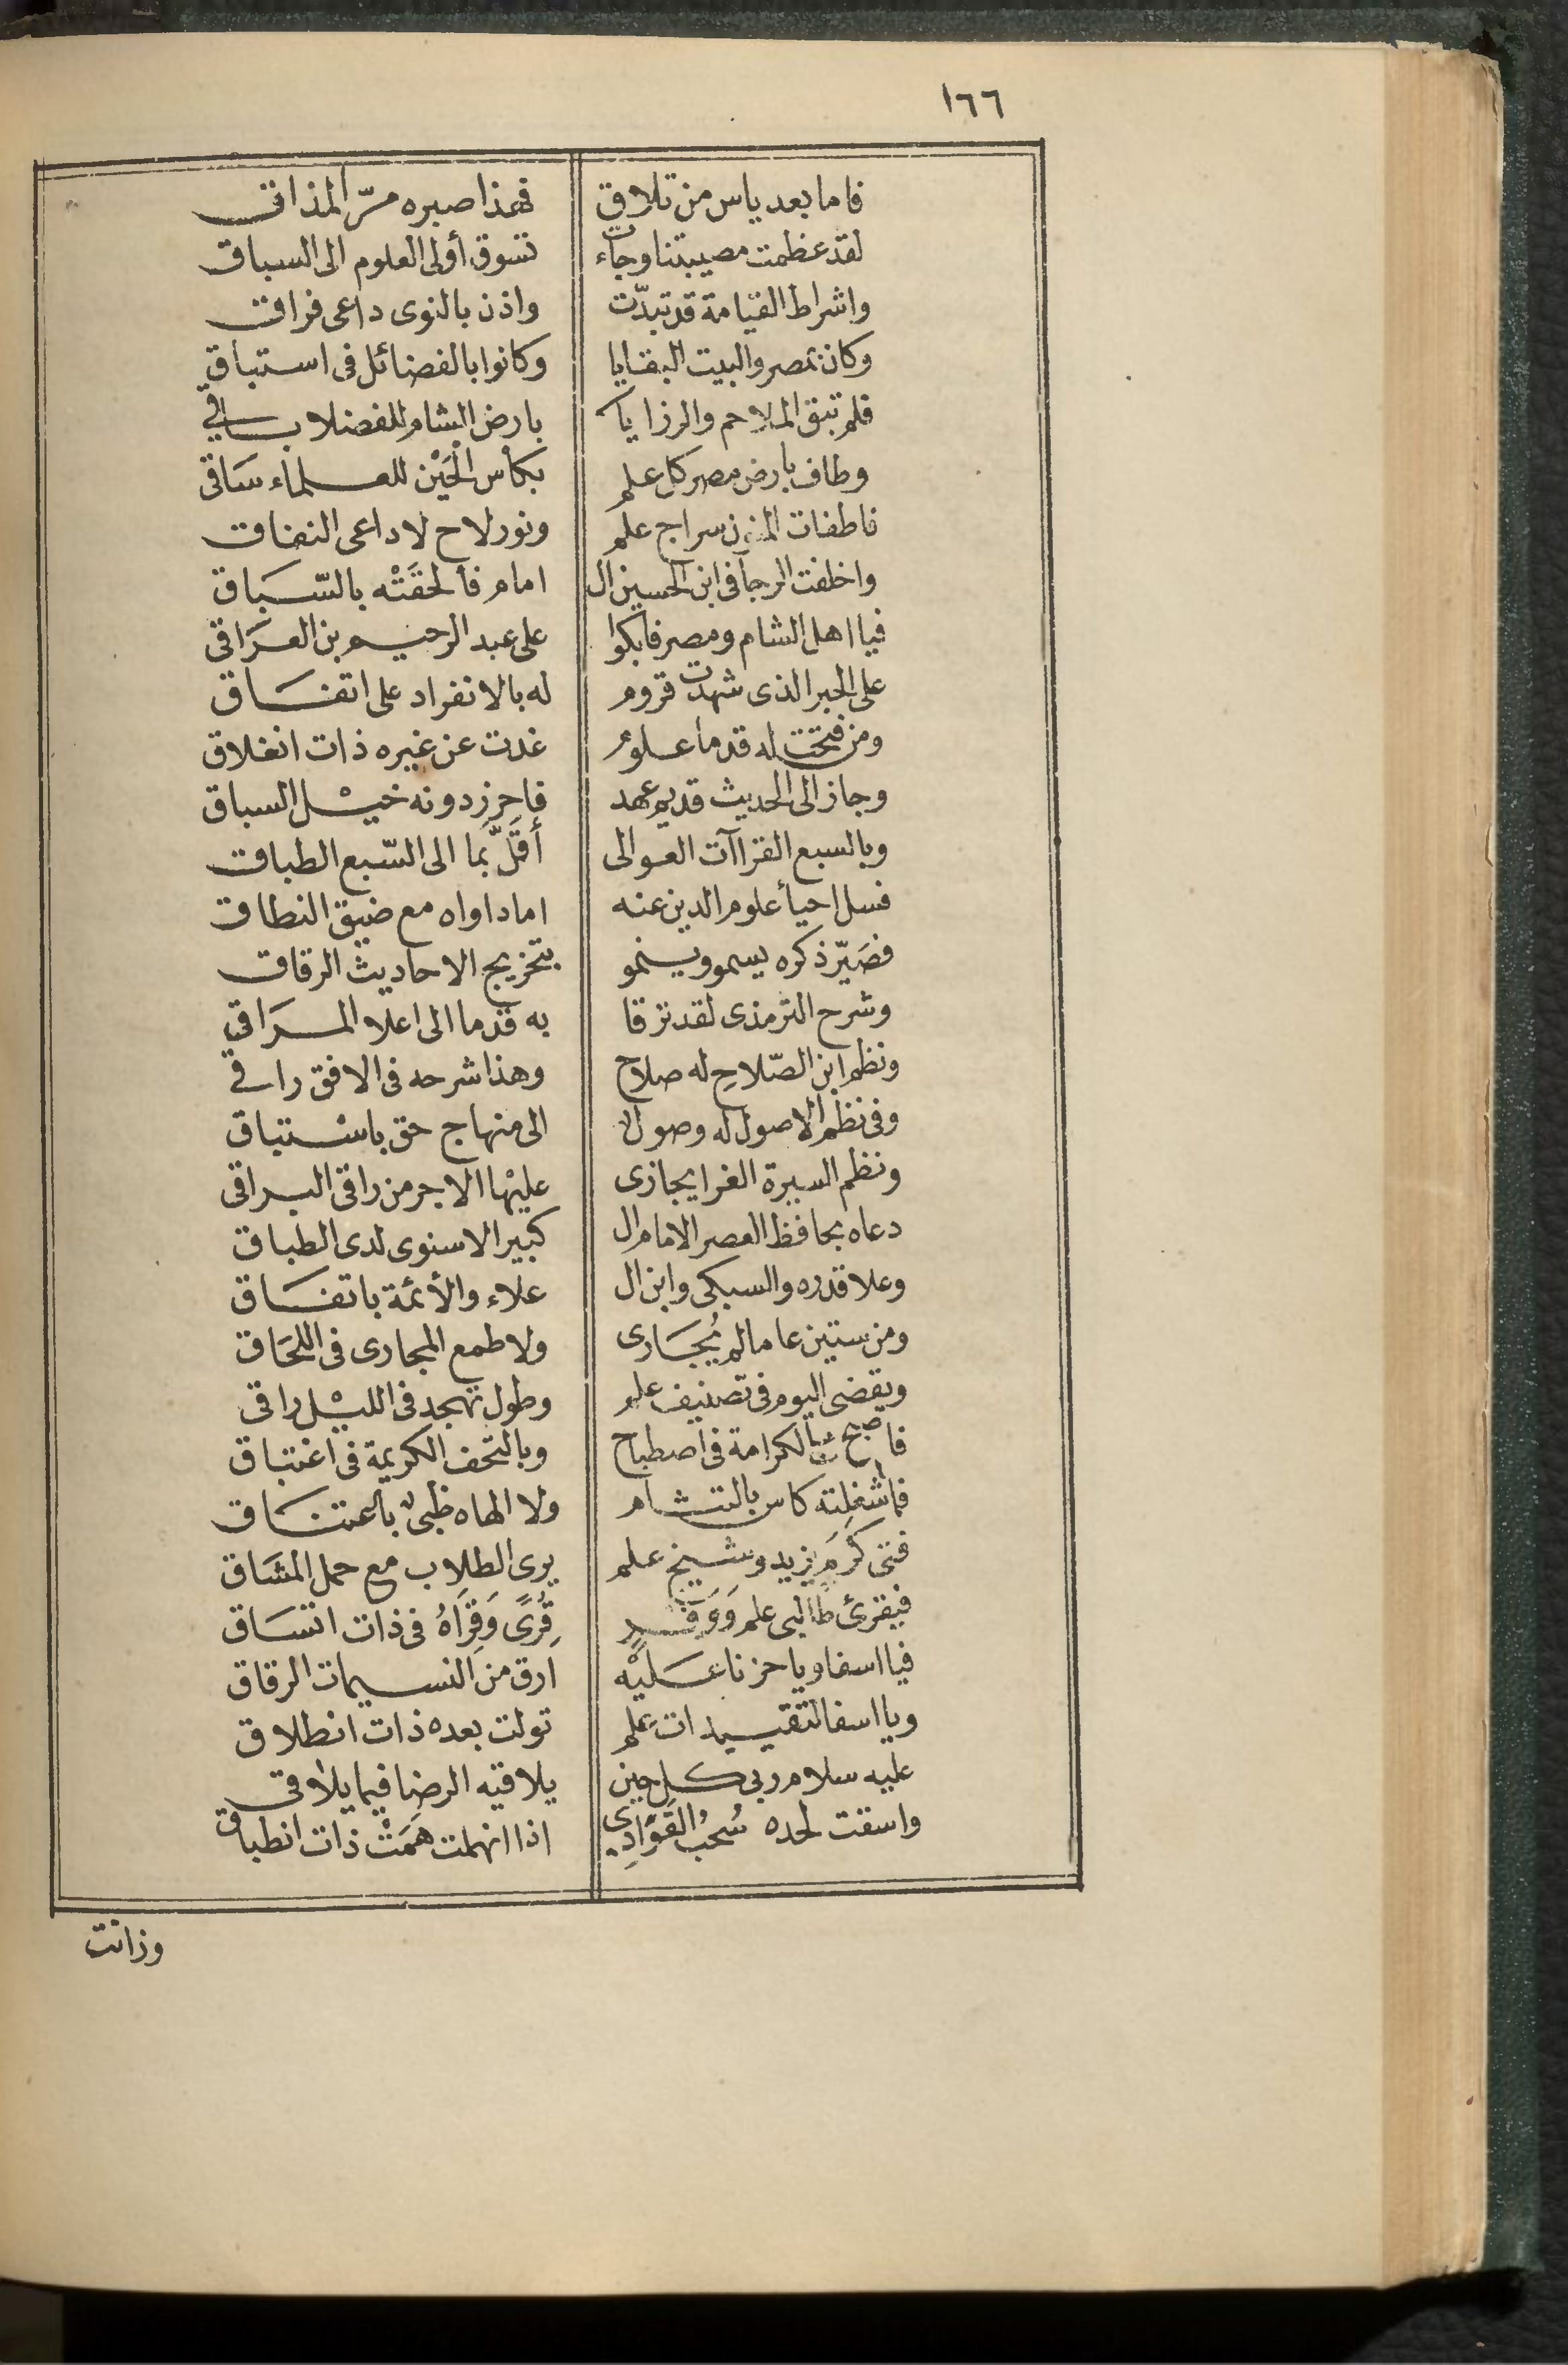 ١٦٦
فاما بعد ياس من تلاق فهذا صبره مرّ المذاق
لقد عظمت مصيبتنا وجاءت تسوق أولى العلوم الى السباق
واشراط القيامة قد تبدّت واذن بالنوى داعى فراق
وكان بمصر والبيت البقايا وكانوا بالفضائل فى استباق
فلم تبق الملاحم والرزايا بارض الشام للفضلا باقى
وطاف بارض مصر كل علم بكأس الحَيْن للعلماء سَاقى
فاطفات المنون سراج علم ونور لاح لاداعى النفاق
واخلفت الرجا فى ابن الحسين ال امام فألحقَتْه بالسّبَاق
فيا اهل الشام ومصر فابكوا على عبد الرحيم بن العرَاقى
على الحبر الذى شهدت قروم له بالانفراد على اتفَاق
ومن فتحت له قدما علوم غدت عن غيره ذات انغلاق
وجاز الى الحديث قديم عهد فاحرز دونه خيْل السباق
وبالسبع القراآت العوالى أقلَّ بَما الى السّبع الطباق
فسل احيأ علوم الدين عنه اما داواه مع ضيق النطاق
فصَيّر ذكره يسمو وينمو بتخريج الاحاديث الرقاق
وشرح الترمذى لقد ترقا به قدما الى اعلا المرَاقى
ونظم ابن الصّلاحِ له صلاح وهذا شرحه فى الافق راقى
وفى نظم الاصول له وصول الى منهاج حق باسْتباق
ونظم السيرة الغرا يجازى عليْها الاجر من راقى البراقى
دعاه بحافظ العصر الامام ال كبير الاسنوى لدى الطباق
وعلا قدره والسبكى وابن ال علاء والأئمة باتفَاق
ومن ستين عاما لم يُجَارى ولا طمع المجارى فى اللحَاق
ويقضى اليوم فى تصنيف علم وطول تهجد فى الليْل راقى
فاصبح بالكرامة فى اصطباح وبالتحف الكريمة فى اغتباق
فما شغلته كاس بالتشام ولا الهاه ظبى باعتنَاق
فتى كرَمٍ يزيد وشيخ علم يرى الطلاب مع حمل المشَاق
فيقرئ طالبى علم وَوَفد قِرًى وَقِرَاهُ فى ذات اتسَاق
فيا اسفا ويا حزنا علَيْه ارق من النسيمات الرقاق
ويا اسفا لتقييدات علم تولت بعده ذات انطلاق
عليه سلام ربى كل حين يلاقيه الرضا فيما يلاقى
واسقت لحده سُحبُ الغَوَادِى اذا انهملت هَمَتْ ذات انطباق
وزانت